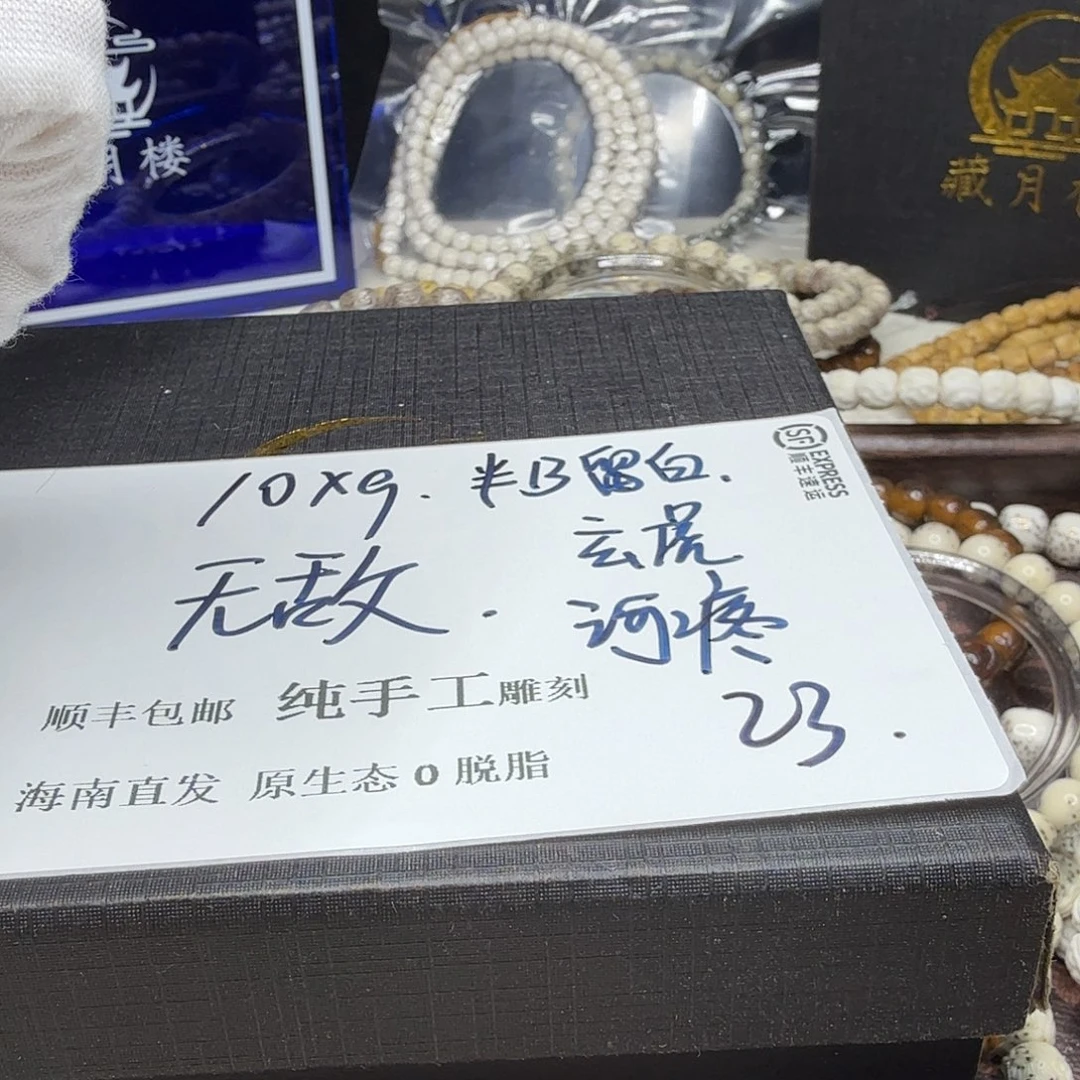 月楼
藏月
SF EXPRESS
顺丰速运
10×9. 半B留白.
无敌.
云虎
河疼
23.
顺丰包邮 纯手工雕刻
海南直发 原生态0脱脂